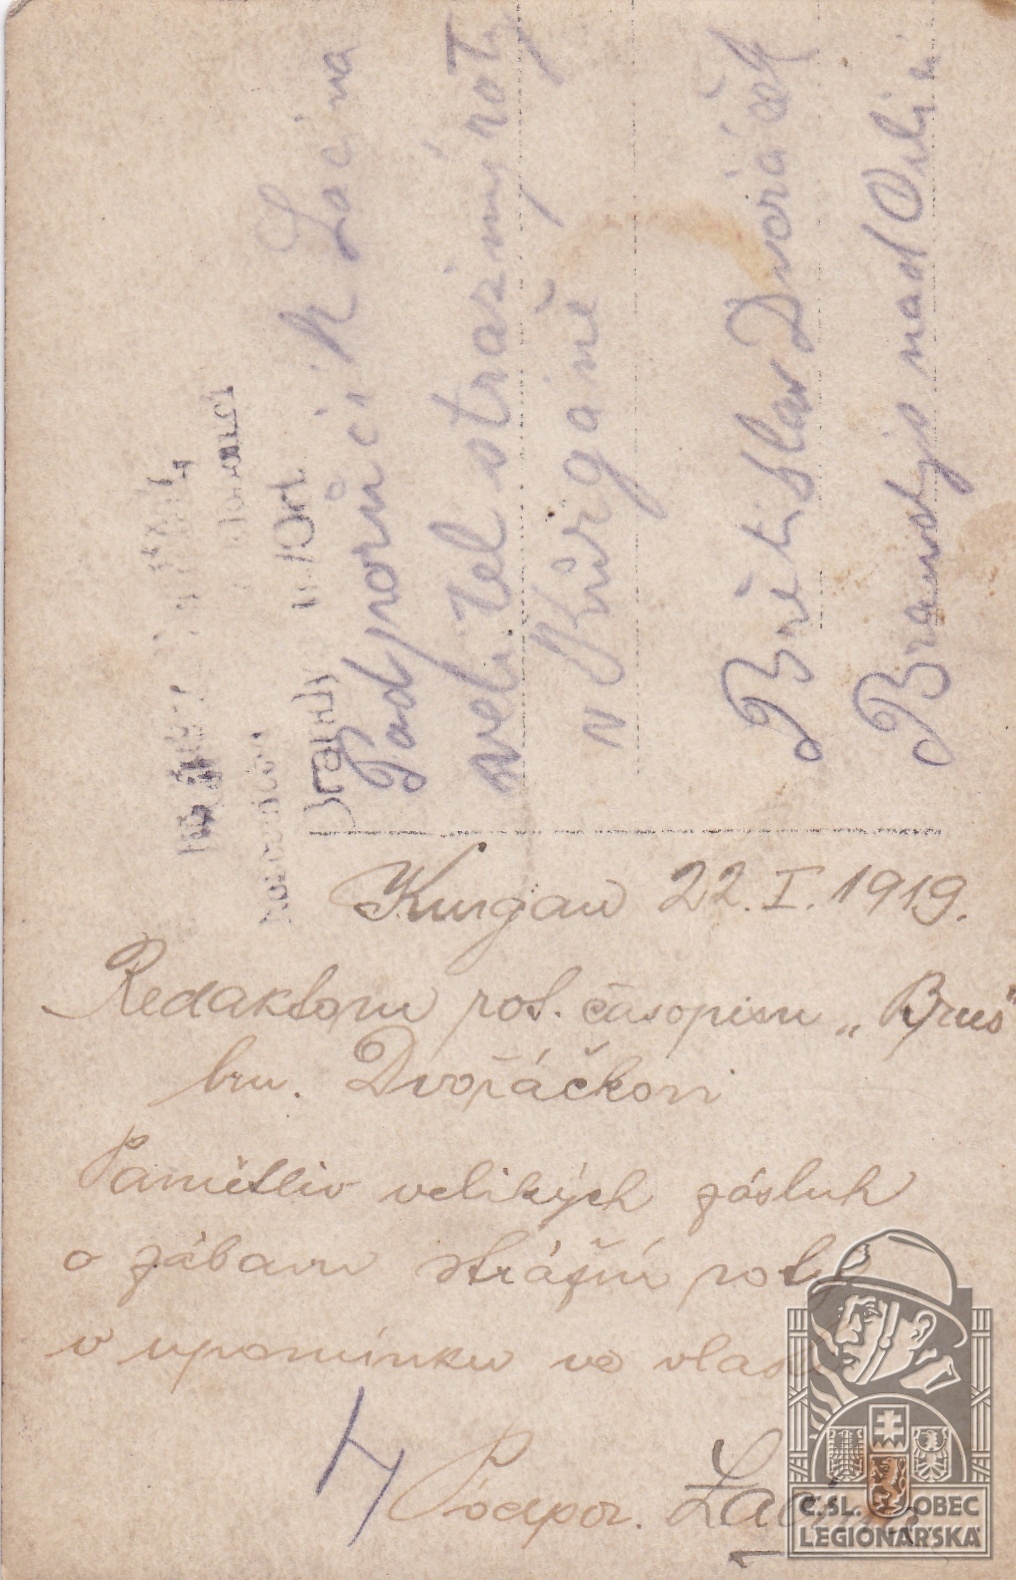 Podporučík Lacina
velitel strážný roty
v Kurganě
Břetislav Dvořáček
Brandýs nad Orlicí
Kurgan 22. I. 1919.
Redaktoru rot. časopisu „Brus"
bru. Dvořáčkovi
Pamětliv velikých zásluh
o zábavu strážní roty
v upomínku ve vlast
Podpor. Lacina
Č.SL. OBEC
LEGIONÁŘSKÁ